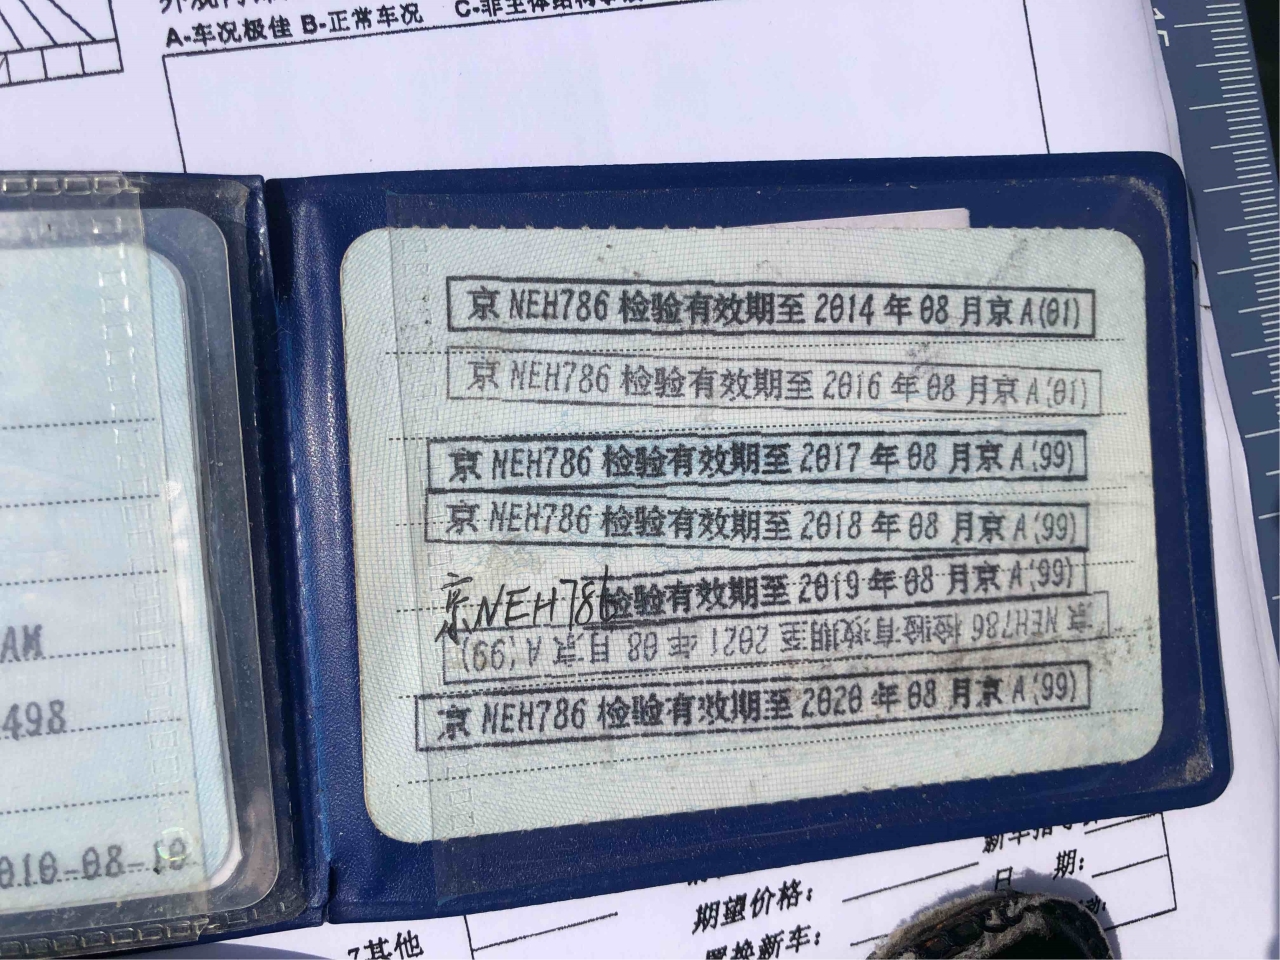 A-车况极佳 B-正常车况
京 NEH786 检验有效期至 2014 年 08 月京 A(01)
京 NEH786 检验有效期至 2016 年 08 月京 A(01)
京 NEH786 检验有效期至 2017 年 08 月京 A(99)
京 NEH786 检验有效期至 2018 年 08 月京 A(99)
京NEH786 检验有效期至 2019 年 08 月京 A(99)
京 NEH786 检验有效期至 2021 年 08 月京 A(99)
京 NEH786 检验有效期至 2020 年 08 月京 A(99)
AM
498
010-08-10
日 期:
期望价格:
置换新车:
7其他